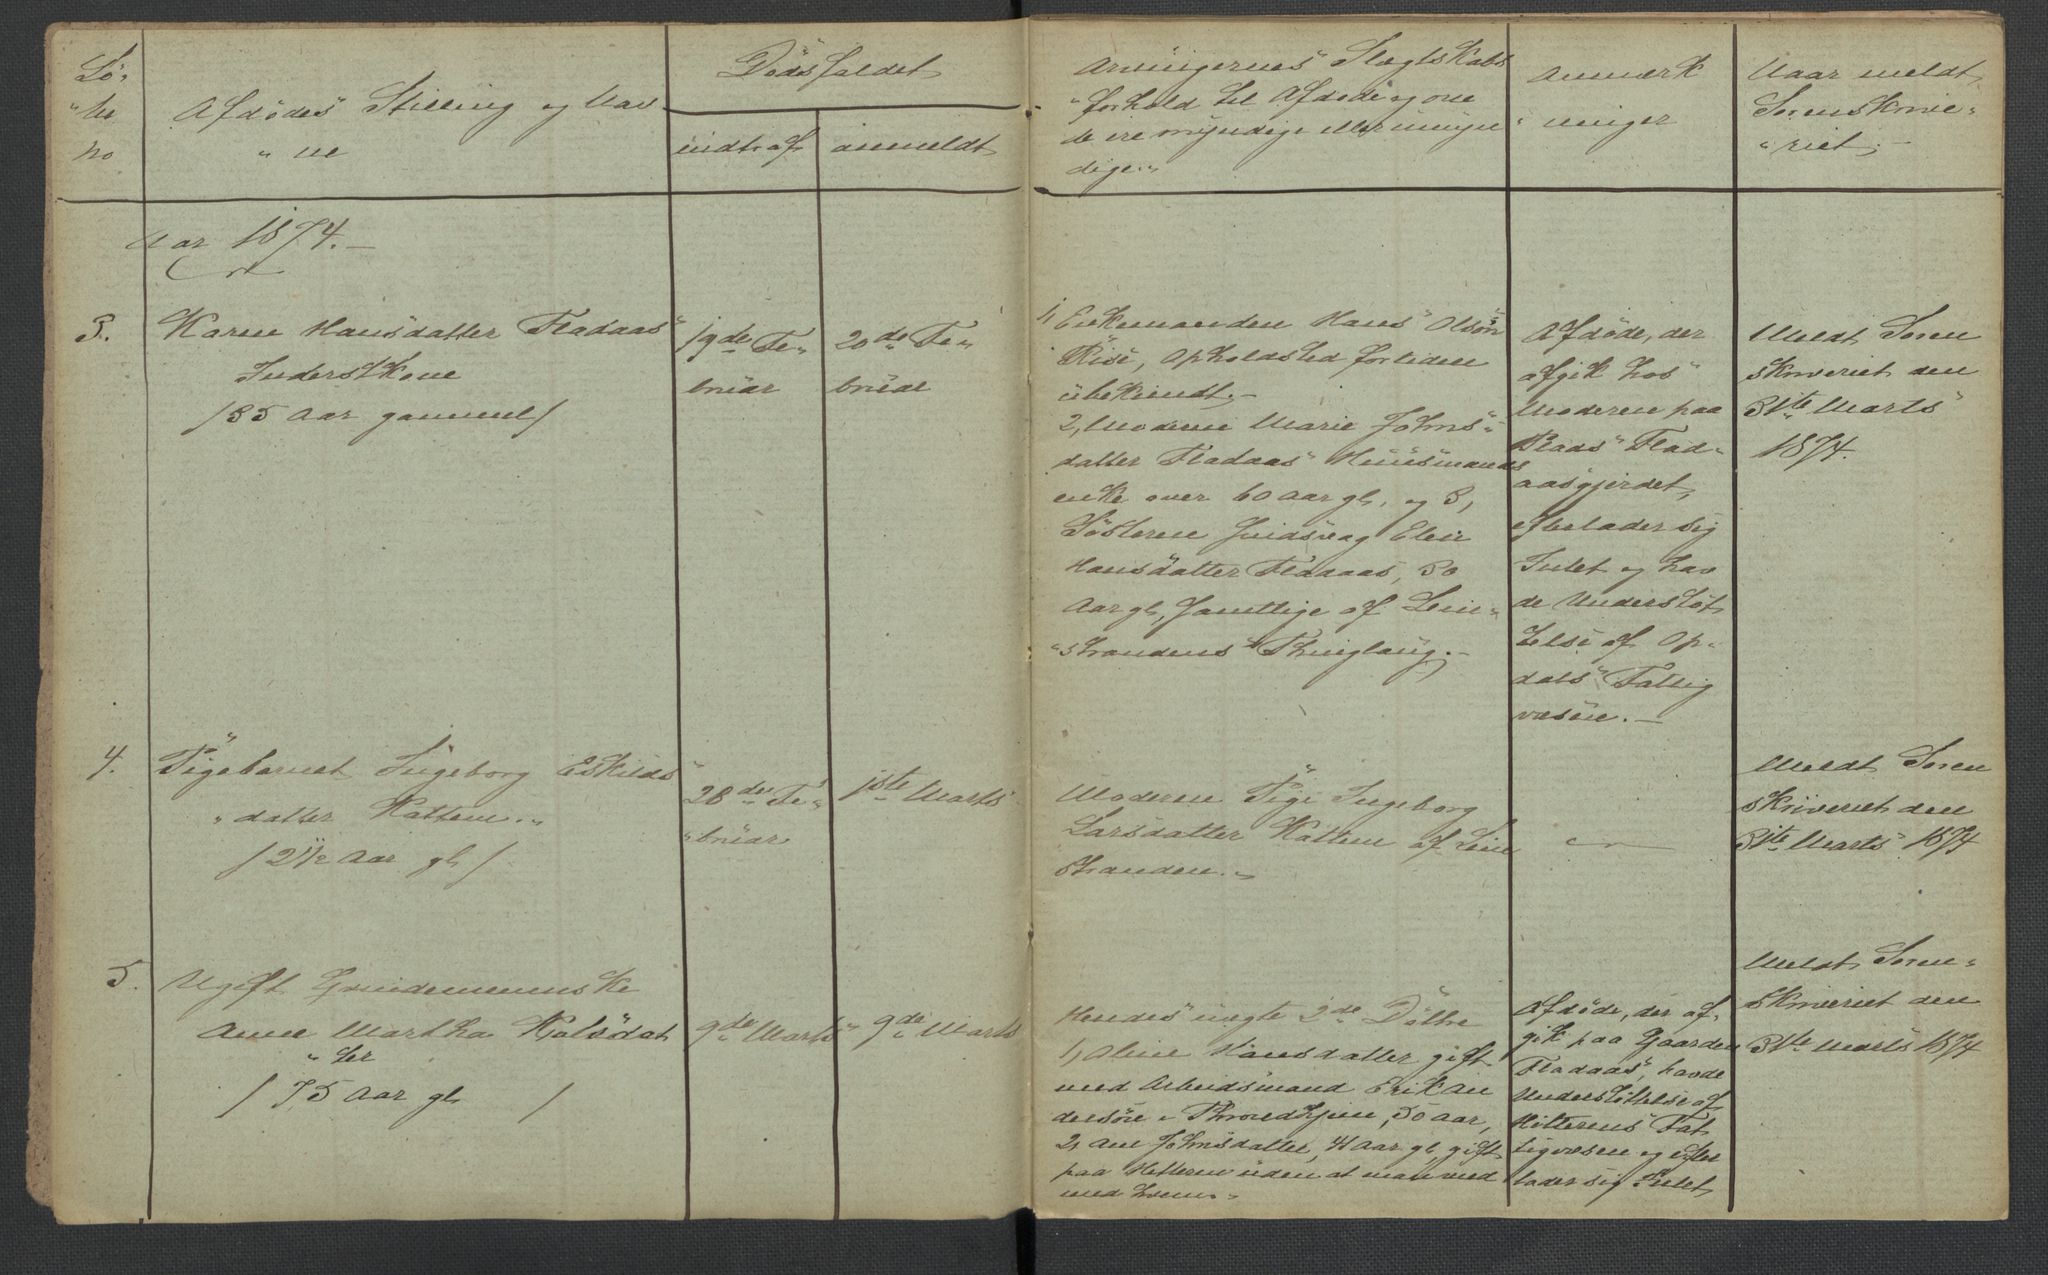 Lø-
"be
no
Afdødes Stilling og Nav
"ne
Dødsfaldet
indtraf
anmeldt
Arvingernes Slægtskabs
forhold til Afdøde og om
de ere myndige eller umyn
dige."
Anmærk
"ninger
Naar meldt
Sorenskrive-
"riet.-
Aar 1874.-
3.
Karen Hansdatter Fladaas
Inderstkone
/35 Aar gammel/
19de Fe-
bruar
20de Fe-
bruar
1, Enkemanden Hans Olsøn
Riise, Opholdsted fortiden
ubekiendt.-
2, Moderen Marie Johns-
datter Fladaas Huusmands
enke over 60 Aar gl. og 3,
Søsteren Elen
Hansdatter Fladaas, 30
Aar gl, samtlige af Lein-
"strandens Thinglaug.-
Afdøde, der
afgik hos
Moderen paa
Plads Flad-
aasgjerdet,
efterlader sig
Intet og hav
de Understøt
telse af Op-
dals Fattig
væsen.-
Meldt Soren
skriveriet den
31te Marts
1874.
4.
Pigebarnet Ingeborg Eskilds
"datter Kattem."
/2 1/2 Aar gl/
28de Fe-
"bruar
1ste Marts
Moderen Pige Ingeborg
Larsdatter Kattem af Lein
stranden.-
Meldt Soren
skriveriet den
31te Marts 1874
5.
Ugift Qvindemenneske
Anne Martha Rolsdat
"ter
/75 Aar gl /
9de Marts
9de Marts
Hendes uægte 2de Døttre
1, Oline Hansdatter gift
med Arbeidsmand Erik An
dersøn i Throndhjem, 50 Aar,
2, Ane Johnsdatter, 41 Aar gl, gift
paa Hitteren uden at man ved
med hvem.-
Afdøde, der af-
gik paa Gaarden
Fladaas, havde
Understøttelse af
Hitterens Fat
tigvæsen og efter
lader sig Intet
Meldt Soren-
skriveriet den
31te Marts 1874